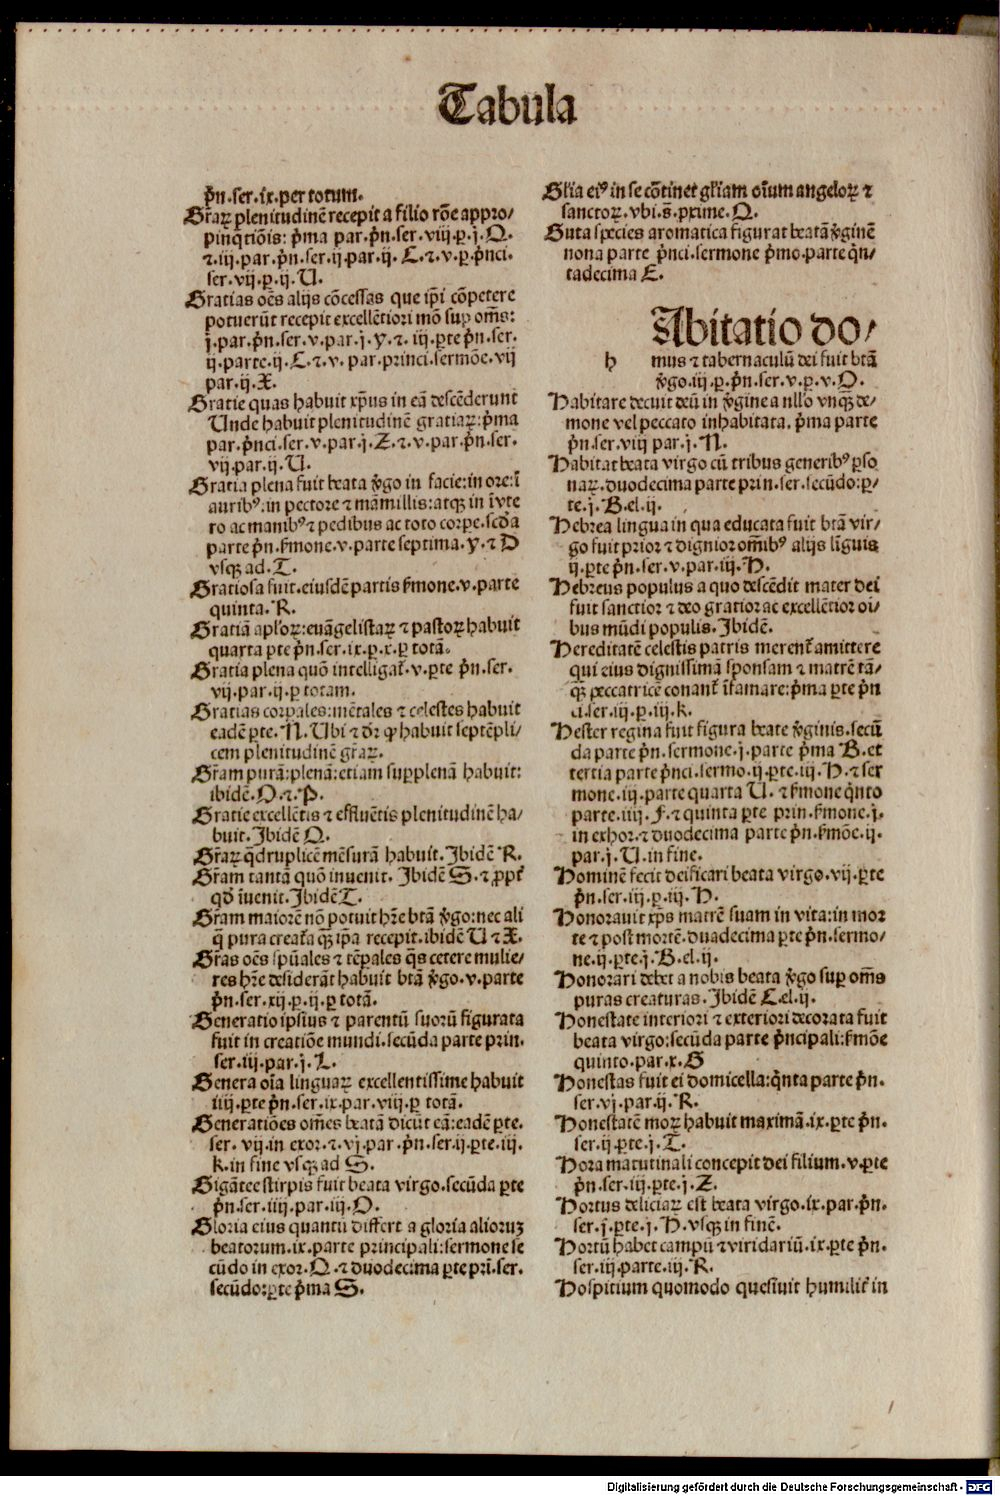 Tabula
p̄n.ser.ix.per totum.
Gr̄aꝝ plenitudinē recepit a filio rōe appro/
pinq̄tiōis: p̄ma par.p̄n.ser.viij.ꝑ.j.Q.
⁊.iij.par.p̄n.ser.ij.par.ij. C.⁊.v.ꝑ.p̄nci.
ser.vij.ꝑ.ij.U.
Gratias oēs alijs cōcessas que ip̄i cōpetere
potuerūt recepit excellētiori mō suꝑ om̄s:
j.par.p̄n.ser.v.par.j.y.⁊. iij.ꝑte p̄n.ser.
ij.parte.ij.C.⁊.v. par.princi.sermōe.vij
par.ij.X.
Gratie quas habuit xp̄us in eā descēderunt
Unde habuit plenitudinē gratiaꝝ:p̄ma
par.p̄nci.ser.v.par.j.Z.⁊.v.par.p̄n.ser.
vij.par.ij.U.
Gratia plena fuit beata v̄go in facie:in ore:ī
auribꝰ:in pectore ⁊ māmillis:atqꝫ in īvte
ro ac manibꝰ ⁊ pedibus ac toto corꝑe.scd̄a
parte p̄n.ẜmone.v.parte septima.y.⁊ D
vsqꝫ ad.T.
Gratiosa fuit.eiusdē partis ẜmone.v.parte
quinta.R.
Gratiā apl'oꝝ:euāgelistaꝝ ⁊ pastoꝝ habuit
quarta ꝑte p̄n.ser.ix.ꝑ.x.ꝑ totā.
Gratia plena quō intelligat̄.v.ꝑte p̄n.ser.
vij.par.ij.ꝑ totam.
Gratias corꝑales:mētales ⁊ celestes habuit
eadē ꝑte.N.Ubi ⁊ dr̄ ꝙ habuit septēpli/
cem plenitudinē gr̄aꝝ.
Gr̄am purā:plenā:etiam suꝑplenā habuit:
ibidē.O.⁊.P.
Gratie excellētis ⁊ effluētis plenitudinē ha/
buit.Ibidē Q.
Gr̄aꝝ q̄druplicē mēsurā habuit.Ibidē R.
Gr̄am tantā quō inuenit. Ibidē S.⁊ ꝓpt̄
qd̄ īuenit.Ibidē T.
Gr̄am maiorē nō potuit hr̄e btā v̄go:nec ali
q̄ pura creat̄a qꝫ ip̄a recepit.ibidē U ⁊ X.
Gr̄as oēs spūales ⁊ tēꝑales q̄s cetere mulie/
res hr̄e desiderāt habuit btā v̄go.v.parte
p̄n.ser.xij.ꝑ.ij.ꝑ totā.
Generatio ipsius ⁊ parentū suorū figurata
fuit in creatiōe mundi.secūda parte prin.
ser.iij.par.j.L.
Genera oīa linguaꝝ excellentissime habuit
iiij.ꝑte p̄n.ser.ix.par.viij.ꝑ totā.
Generatiōes om̄es beatā dicūt eā:eadē ꝑte.
ser. vij.in exor.⁊.vj.par.p̄n.ser.ij.ꝑte.iij.
k.in fine vsqꝫ ad S.
Gigātee stirpis fuit beata virgo.secūda ꝑte
p̄n.ser.iiij.par.iij.O.
Gloria eius quantū differt a gloria alioruꝫ
beatorum.ix.parte principali:sermone se
cūdo in exor.Q.⁊ duodecima ꝑte pri.ser.
secūdo:ꝑte p̄ma S.
Gl'ia eiꝰ in se cōtinet gl'iam oīum angeloꝝ ⁊
sanctoꝝ.vbi.s̄.ꝓxime.Q.
Guta species aromatica figurat beatā v̄ginē
nona parte p̄nci.sermone p̄mo.parte q̄n/
tadecima E.
Abitatio do/
h mus ⁊ tabernaculū dei fuit btā
v̄go.iij.ꝑ.p̄n.ser.v.ꝑ.v.O.
Habitare decuit deū in v̄gine a nllo vnqꝫ de/
mone vel peccato inhabitata.p̄ma parte
p̄n.ser.viij par.j.N.
Habitat beata virgo cū tribus generibꝰ ꝑso
naꝝ.duodecima parte prin.ser.secūdo:ꝑ/
te.j.B.el.ij.
Hebrea lingua in qua educata fuit btā vir/
go fuit prior ⁊ dignior om̄ibꝰ alijs līguis
ij.ꝑte p̄n.ser.v.par.iij.H.
Hebreus populus a quo descēdit mater dei
fuit sanctior ⁊ deo gratior ac excellētior oī/
bus mūdi populis.Ibidē.
Hereditatē celestis patris merent̄ amittere
qui eius dignissimā sponsam ⁊ matrē tā/
qꝫ peccatricē conant̄ īfamare:p̄ma ꝑte p̄n
ci.ser.iij.ꝑ.iij.k.
Hester regina fuit figura beate v̄ginis.secū
da parte p̄n.sermone.j.parte p̄ma B.et
tertia parte p̄nci.sermo.ij.ꝑte.iij.H.⁊ ser
mone.iij.parte quarta U.⁊ ẜmone q̄nto
parte.iij.F.⁊ quinta ꝑte prin.ẜmone.j.
in exhor.⁊ duodecima parte p̄n.ẜmōe.ij.
par.j.U.in fine.
Hominē fecit deificari beata virgo.vij.ꝑte
p̄n.ser.iij.ꝑ.iij.H.
Honorauit xp̄s matrē suam in vita:in mor
te ⁊ post mortē.duadecima ꝑte p̄n.sermo/
ne.ij.ꝑte.j.B.el.ij.
Honorari debet a nobis beata v̄go suꝑ om̄s
puras creaturas.Ibidē C.el.ij.
Honestate interiori ⁊ exteriori decorata fuit
beata virgo:secūda parte p̄ncipali:ẜmōe
quinto.par.x.G
Honestas fuit ei domicella:q̄nta parte p̄n.
ser.vj.par.ij.R.
Honestatē moꝝ habuit maximā.ix.ꝑte p̄n.
ser.ij.ꝑte.j.T.
Hora matutinali concepit dei filium.v.ꝑte
p̄n.ser.iij.ꝑte.j.Z.
Hortus deliciaꝝ est beata virgo.ix.par.p̄n.
ser.j.ꝑte.j.H.vsqꝫ in finē.
Hortū habet campū ⁊ viridariū.ix.ꝑte p̄n.
ser.iij.parte.iij.R.
Hospitium quomodo quesiuit humilit̄ in
Digitalisierung gefördert durch die Deutsche Forschungsgemeinschaft - DFG